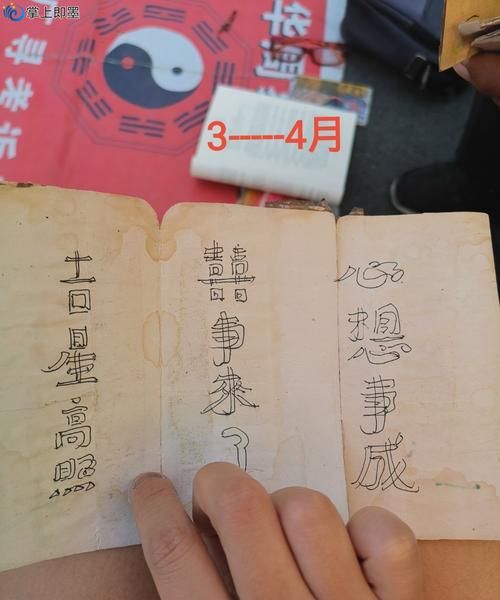 掌上即墨
华周
3-----4月
心想事成
囍事來了
吉星高照